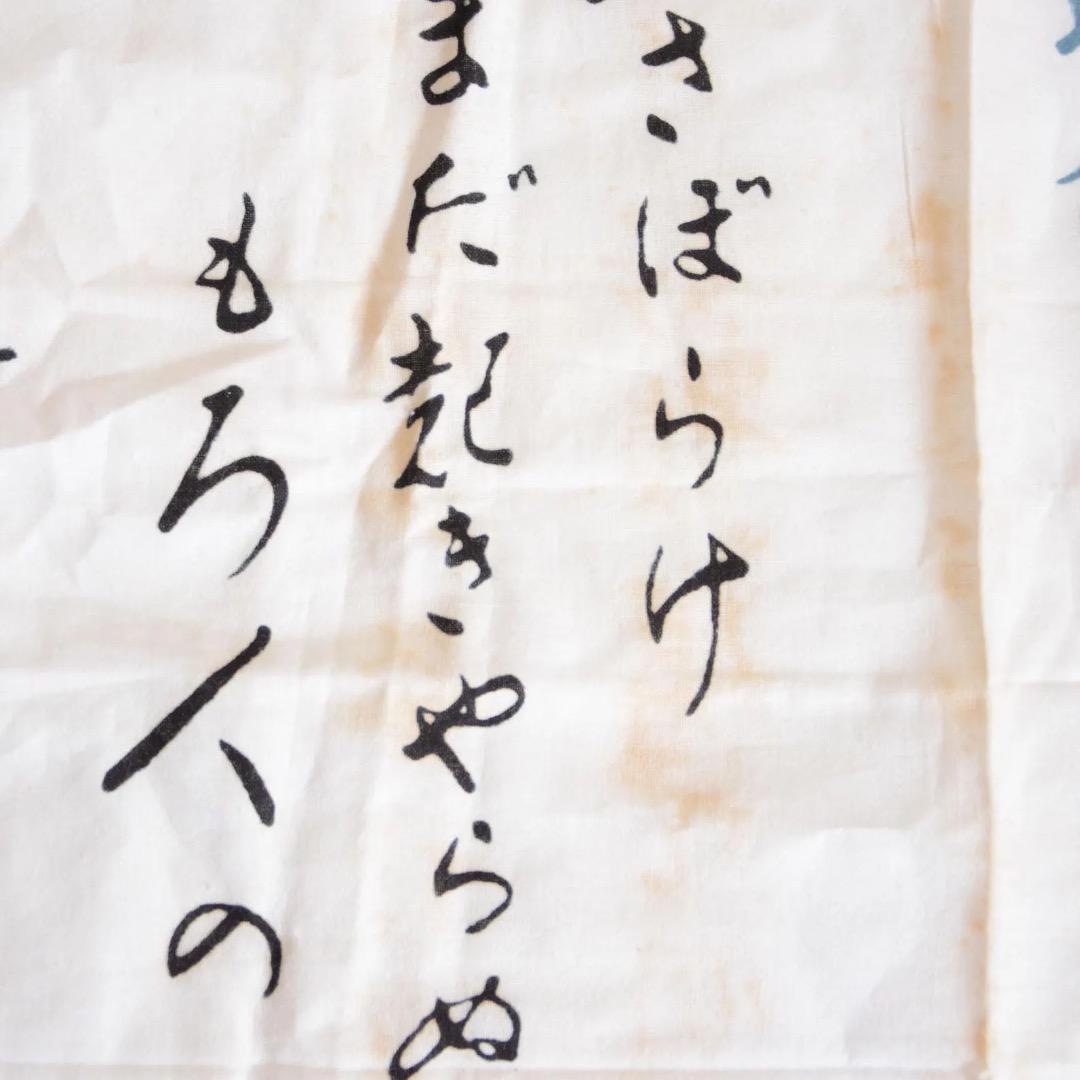 さぼらけ
まだ起きやらぬ
もろ人の